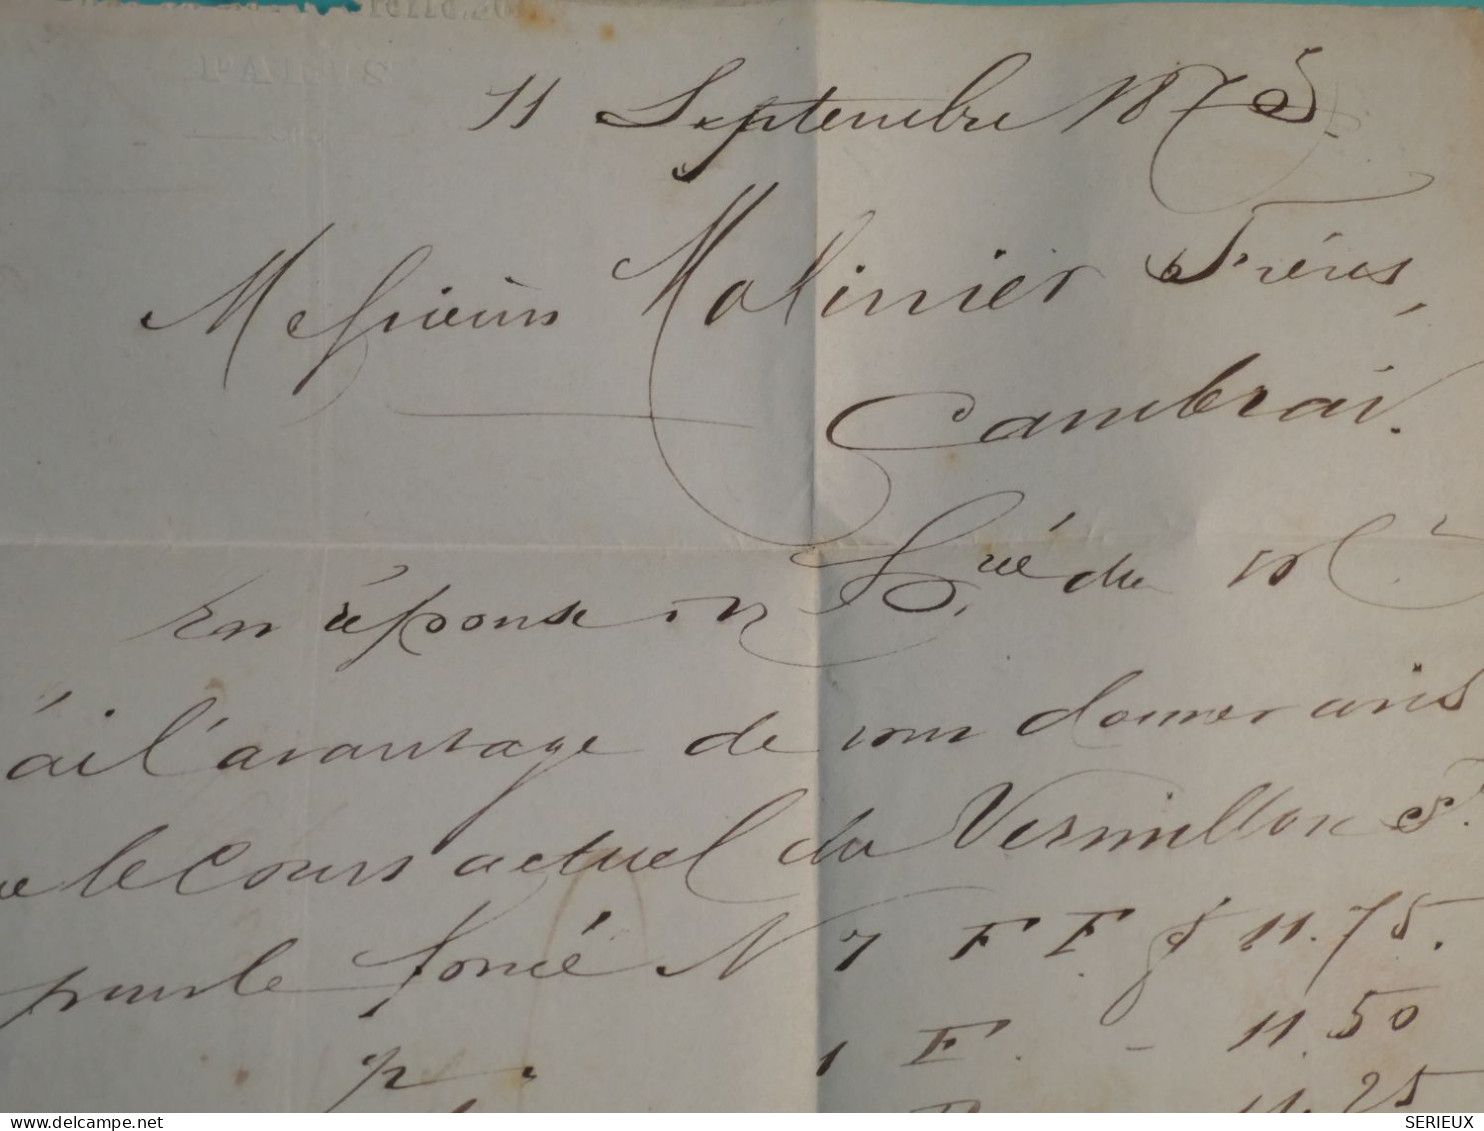 PARIS
11 Septembre 1875
Messieurs Molinier Frères,
Cambrai.
En réponse à v/ h/rée du 10 Ct
j'ai l'avantage de vous donner avis
que le cours actuel du Vermillon
pour le foncé N 7 FF f 11.75.
1 F. - 11.50
11.25
delcampe.net
SERIEUX